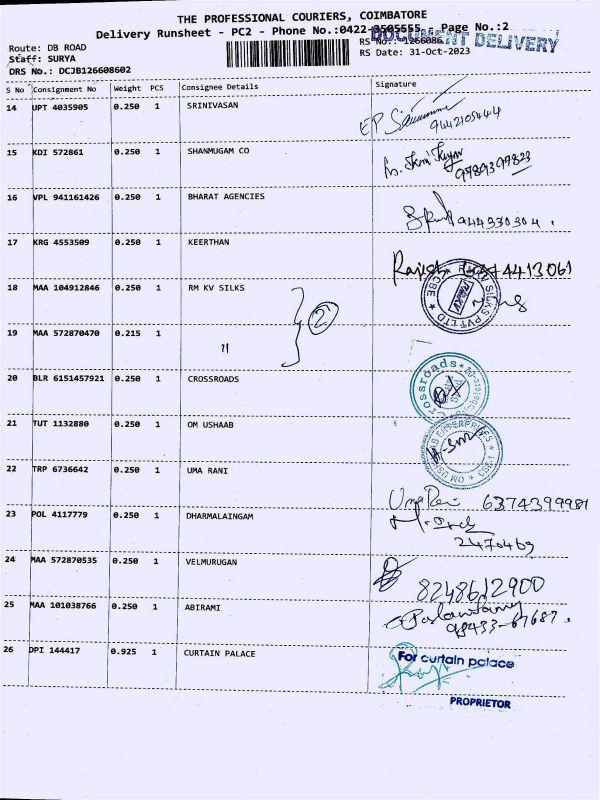 THE PROFESSIONAL COURIERS, COIMBATORE
Delivery Runsheet - PC2 - Phone No.:0422-2505555 Page No.:2
DOCUMENT DELIVERY
Route: DB ROAD
RS No.: 1266086
Staff: SURYA
RS Date: 31-Oct-2023
DRS No.: DCJB126608602
S No Consignment No Weight PCS Consignee Details Signature
14 UPT 4035905 0.250 1 SRINIVASAN
9442105444
15 KDI 572861 0.250 1 SHANMUGAM CO
9789397823
16 VPL 941161426 0.250 1 BHARAT AGENCIES
944330304.
17 KRG 4553509 0.250 1 KEERTHAN
Rajesh 4413061
18 MAA 104912846 0.250 1 RM KV SILKS
2
SILKS PVT LTD
19 MAA 572870470 0.215 1 "
20 BLR 6151457921 0.250 1 CROSSROADS
Crossroads
21 TUT 1132880 0.250 1 OM USHAAB
OM USHAAB ENTERPRISES
22 TRP 6736642 0.250 1 UMA RANI
Uma Rani 6374399981
23 POL 4117779 0.250 1 DHARMALAINGAM
2470469
24 MAA 572870535 0.250 1 VELMURUGAN
8248612900
25 MAA 101038766 0.250 1 ABIRAMI
98433-67687.
26 DPI 144417 0.925 1 CURTAIN PALACE
For curtain palace
PROPRIETOR